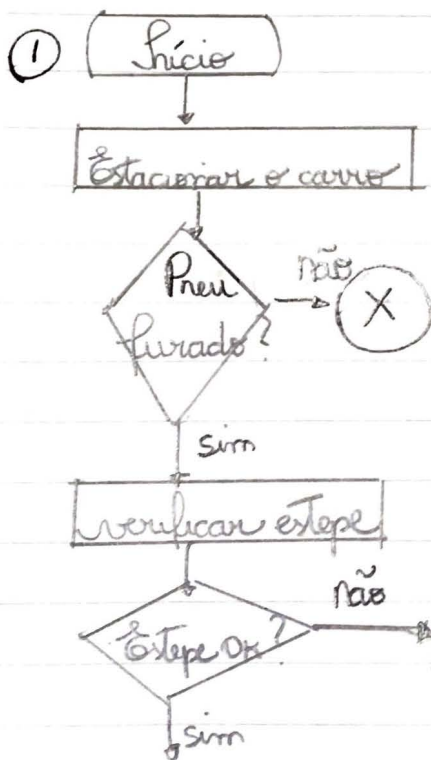 1
Início
Estacionar o carro
Pneu
furado?
não
X
sim
verificar estepe
não
Estepe OK?
sim